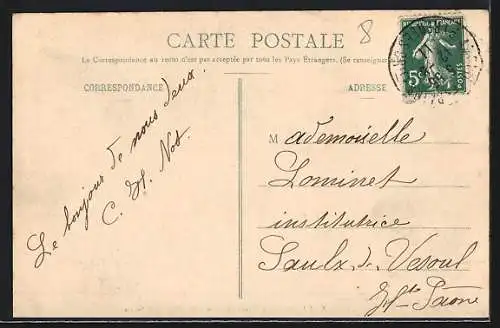 8
CARTE POSTALE
La Correspondance au recto n'est pas acceptée par tous les Pays Étrangers. (Se renseigner
CORRESPONDANCE
ADRESSE
5c
POSTES
Le bonjour de nous deux.
C. H. Not.
Mademoiselle
Lominet
institutrice
Saulx de Vesoul
Hte Saône